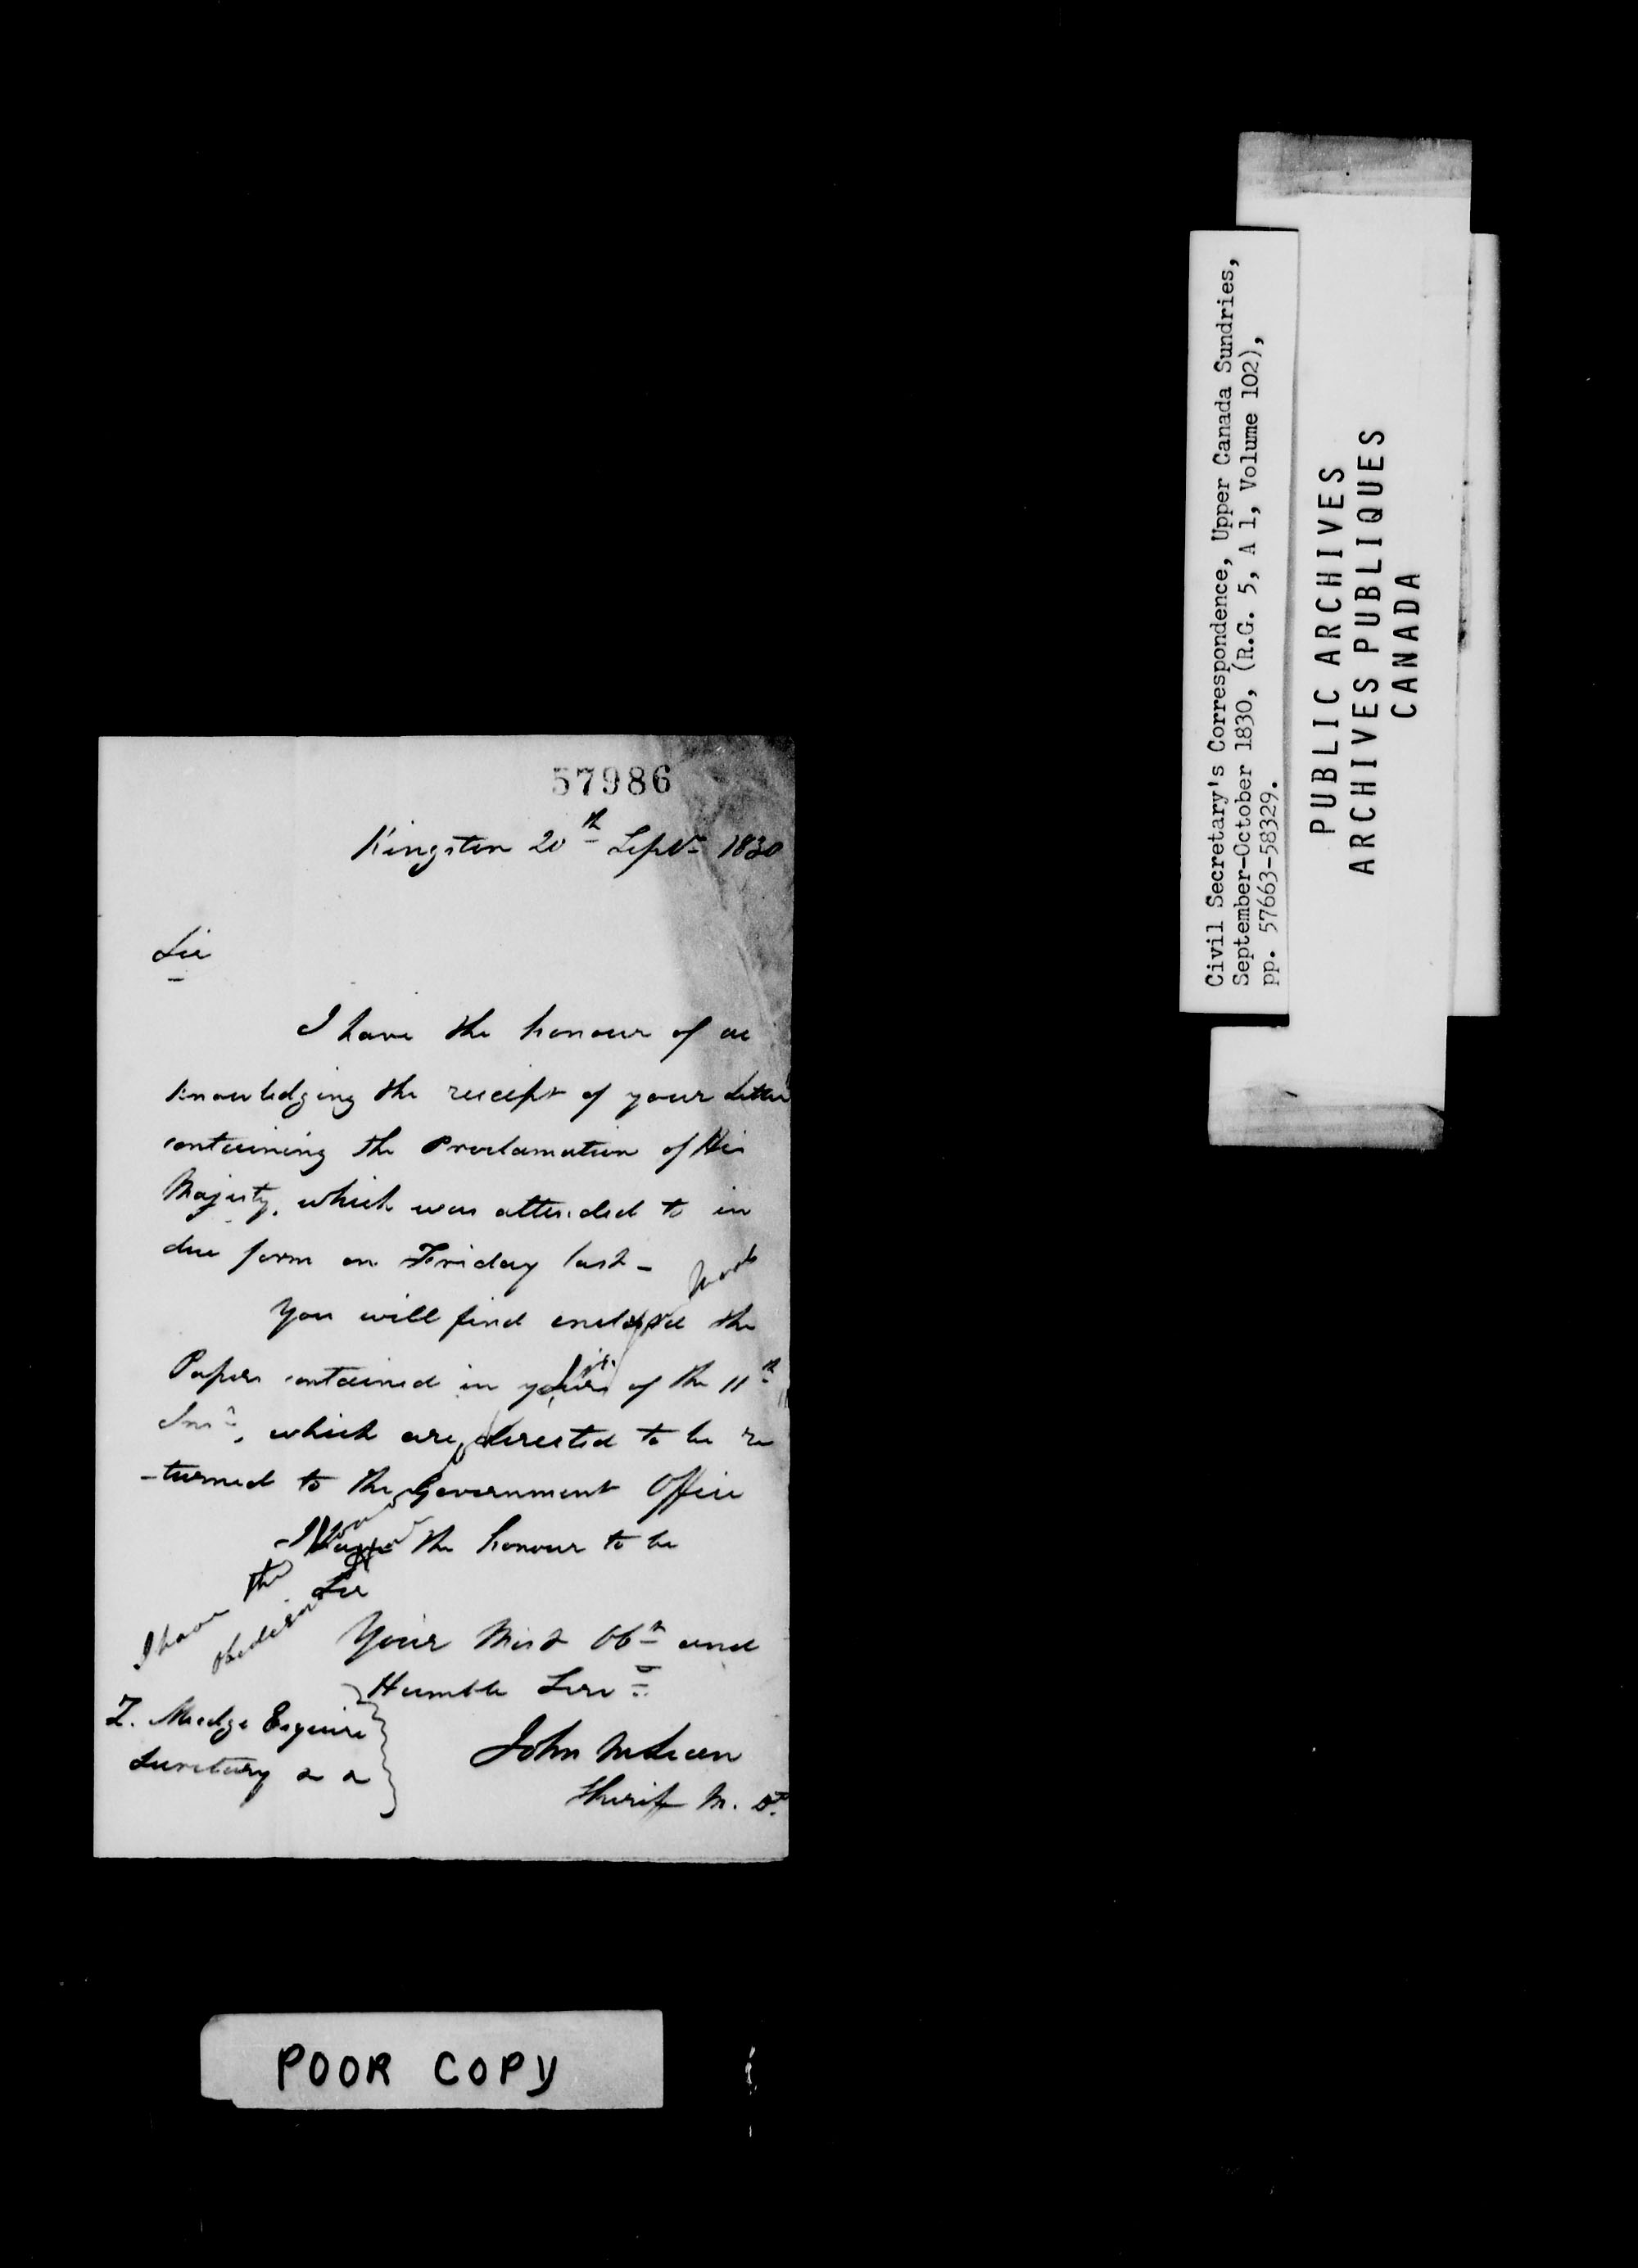 57986
Kingston 20th Septr 1830
Sir
I have the honour of ac
knowledging the receipt of your Letter
containing the Proclamation of His
Majesty, which was attended to in
due form on Friday last -
You will find enclosed the
Papers contained in yours of the 11th
Inst, which are directed to be re
-turned to the Government Office
- I have the honour to be
Sir
Your Most Obt and
Humble Servt
Z. Mudge Esquire
Secretary
John McLean
Sherif M. D.
I have the
POOR COPY
Civil Secretary's Correspondence, Upper Canada Sundries,
September-October 1830, (R.G. 5, A 1, Volume 102),
pp. 57663-58329.
PUBLIC ARCHIVES
ARCHIVES PUBLIQUES
CANADA